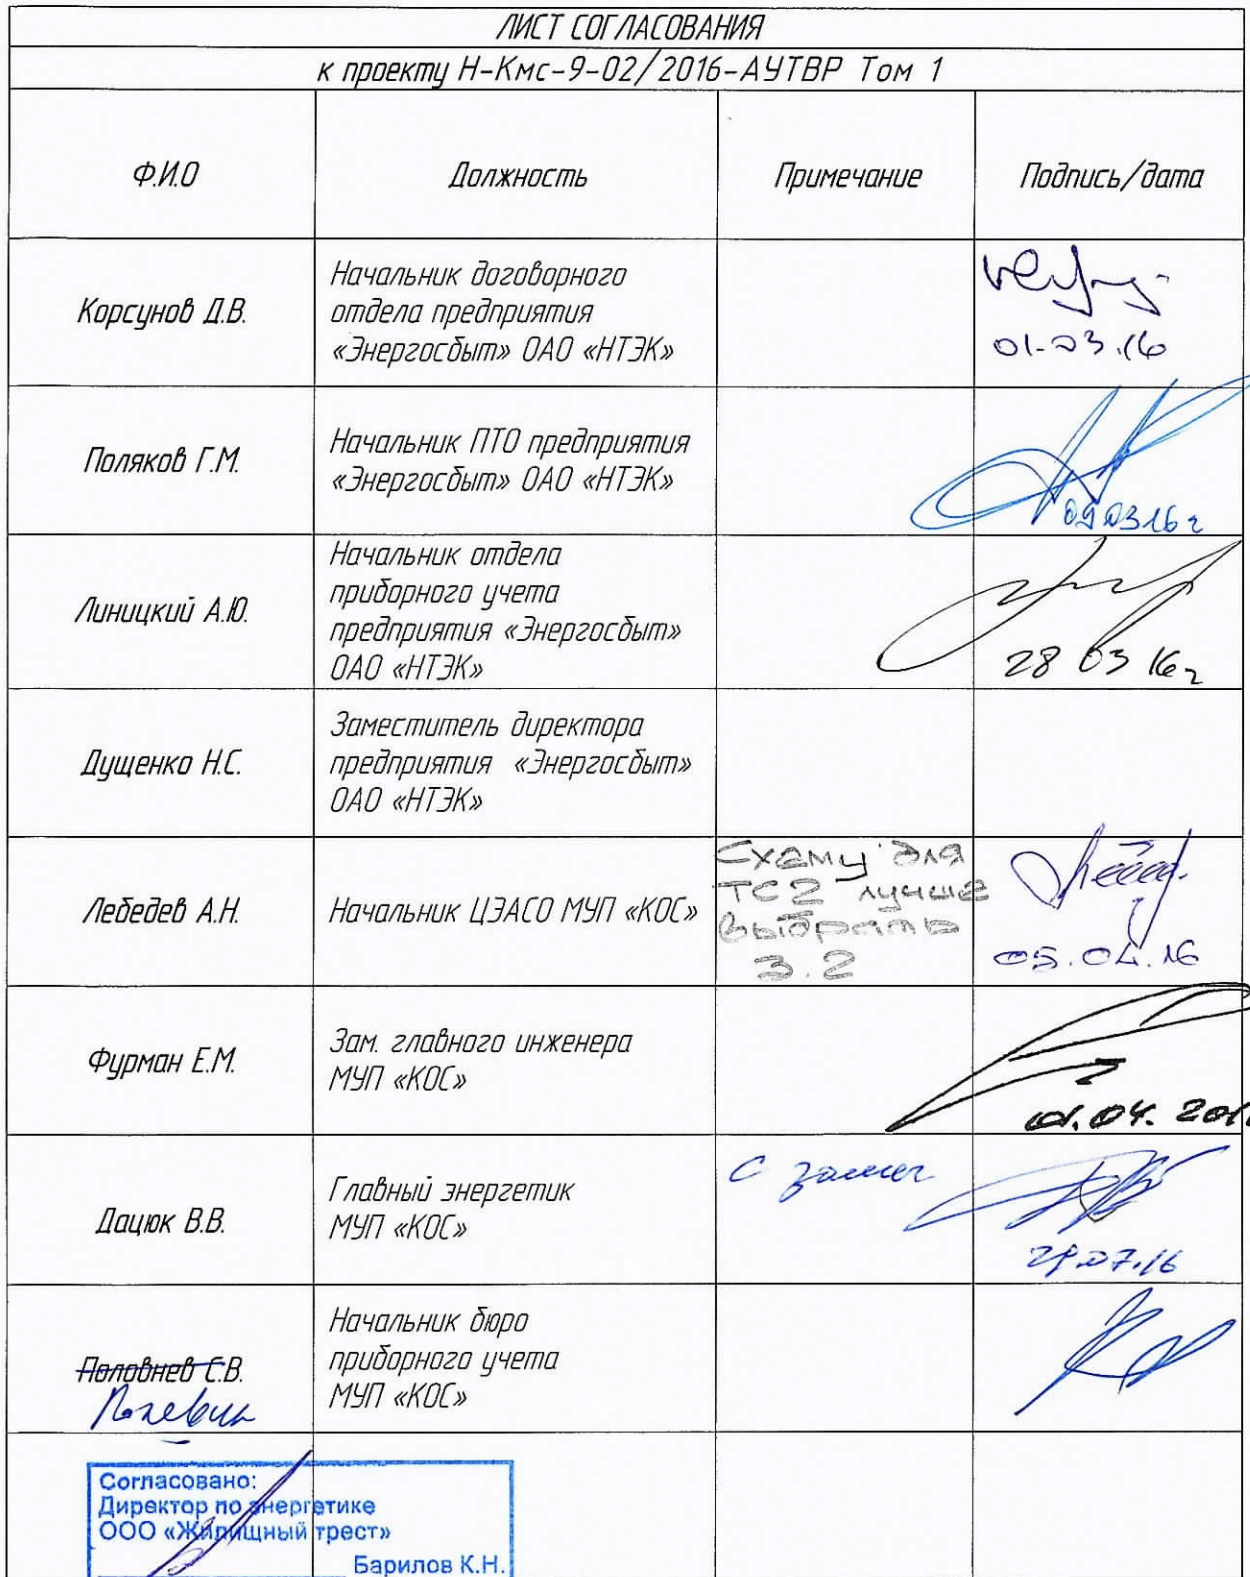 ЛИСТ СОГЛАСОВАНИЯ
к проекту Н-Кмс-9-02/2016-АУТВР Том 1
Ф.И.О
Должность
Примечание
Подпись/дата
Корсунов Д.В.
Начальник договорного
отдела предприятия
«Энергосбыт» ОАО «НТЭК»
01.03.16
Поляков Г.М.
Начальник ПТО предприятия
«Энергосбыт» ОАО «НТЭК»
09.03.16 г
Линицкий А.Ю.
Начальник отдела
приборного учета
предприятия «Энергосбыт»
ОАО «НТЭК»
28 03 16 г
Дущенко Н.С.
Заместитель директора
предприятия «Энергосбыт»
ОАО «НТЭК»
Лебедев А.Н.
Начальник ЦЭАСО МУП «КОС»
Схему для
ТС2 лучше
выбрать
3.2
05.04.16
Фурман Е.М.
Зам. главного инженера
МУП «КОС»
01.04.201
Дацюк В.В.
Главный энергетик
МУП «КОС»
с замеч
29.07.16
Половнев С.В.
Начальник бюро
приборного учета
МУП «КОС»
Согласовано:
Директор по энергетике
ООО «Жилищный трест»
Барилов К.Н.